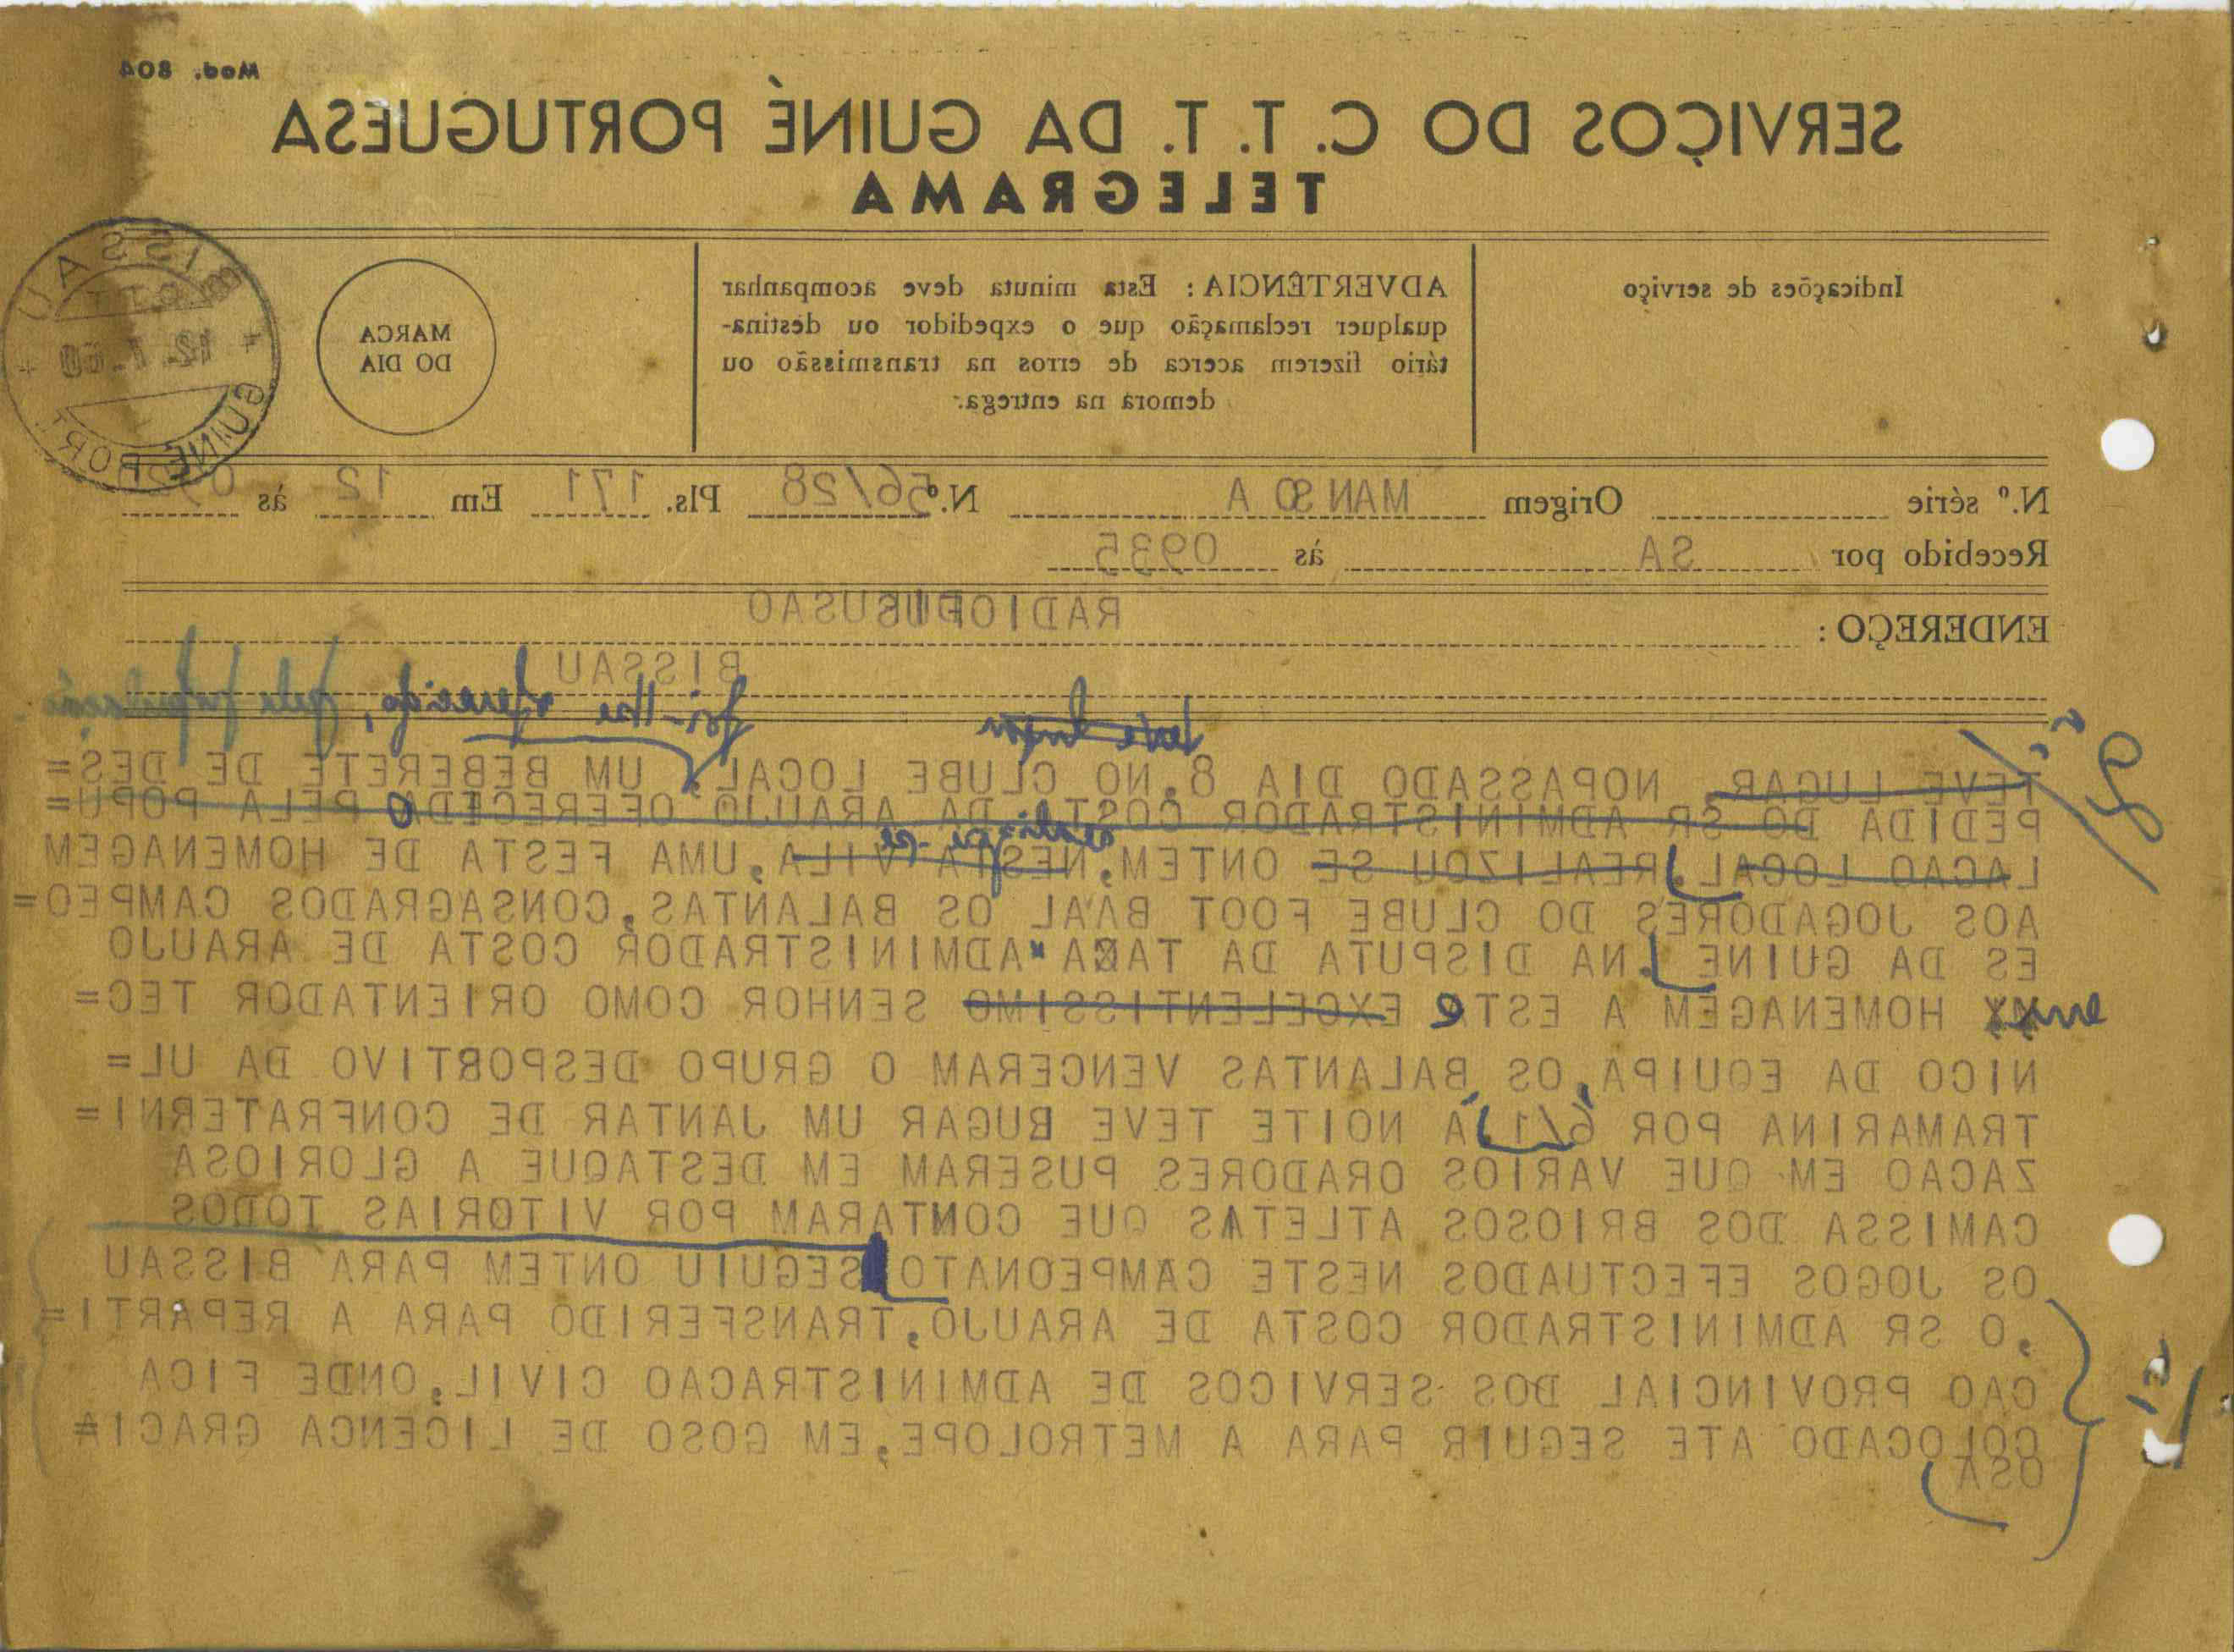 Mod. 804
SERVIÇOS DO C. T. T. DA GUINÉ PORTUGUESA
TELEGRAMA
Indicações de serviço
ADVERTÊNCIA: Esta minuta deve acompanhar
qualquer reclamação que o expedidor ou destina-
tário fizerem acerca de erros na transmissão ou
demora na entrega.
MARCA
DO DIA
BISSAU
CTT
12. 1. 60
GUINÉ PORT.
N.º série Origem MANSOA N.º 56/28 Pls. 171 Em 12 às
Recebido por SA às 0935
ENDEREÇO: RADIODIFUSAO
BISSAU
teve lugar foi-lhe oferecido, pela população.
TEVE LUGAR NOPASSADO DIA 8,NO CLUBE LOCAL, UM BEBERETE DE DES=
PEDIDA DO SR ADMINISTRADOR COST DA ARAUJO OFERECIDO PELA POPU=
realizou-se
LACAO LOCAL.REALIZOU SE ONTEM,NESTA VILA,UMA FESTA DE HOMENAGEM
AOS JOGADORES DO CLUBE FOOT BAAL OS BALANTAS,CONSAGRADOS CAMPEO=
ES DA GUINE.NA DISPUTA DA TACA "ADMINISTRADOR COSTA DE ARAUJO
em HOMENAGEM A ESTE EXCELENTISSIMO SENHOR COMO ORIENTADOR TEC=
NICO DA EQUIPA,OS BALANTAS VENCERAM O GRUPO DESPORTIVO DA UL=
TRAMARINA POR 6/1.Á NOITE TEVE BUGAR UM JANTAR DE CONFRATERNI=
ZACAO EM QUE VARIOS ORADORES PUSERAM EM DESTAQUE A GLORIOSA
CAMISSA DOS BRIOSOS ATLETAS QUE CONTARAM POR VITORIAS TODOS
OS JOGOS EFECTUADOS NESTE CAMPEONATO SEGUIU ONTEM PARA BISSAU
,O SR ADMINISTRADOR COSTA DE ARAUJO,TRANSFERIDO PARA A REPARTI=
CAO PROVINCIAL DOS SERVICOS DE ADMINISTRACAO CIVIL,ONDE FICA
COLOCADO ATE SEGUIR PARA A METROLOPE,EM GOSO DE LICENCA GRACI=
OSA